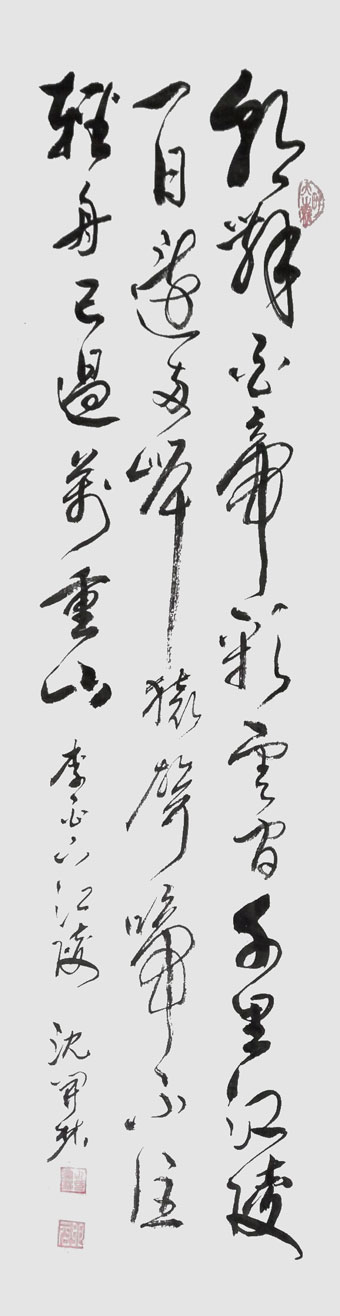 朝辭白帝彩雲間千里江陵
一日還兩岸猿聲啼不住
輕舟已過萬重山
李白下江陵 沈